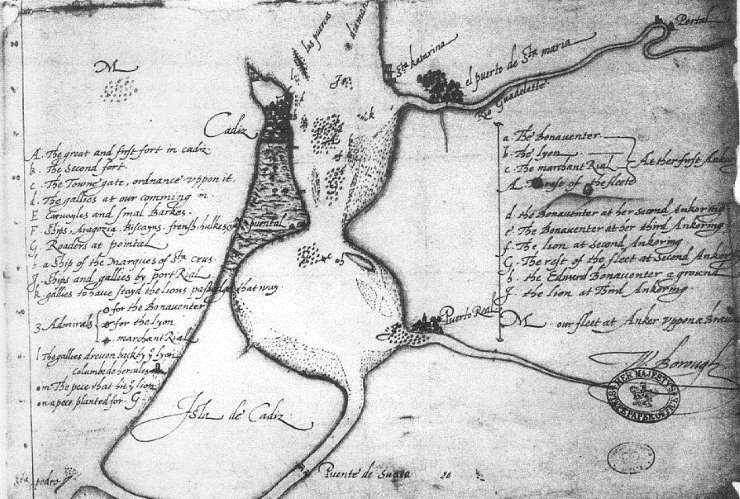 M
Cadiz
A. The great and first fort in cadiz
b. The second fort
c. The Towne gate, ordnance vppon it
d. The gallies at our comming in
E Caruayles and smal Barkes.
F. Ships, Aragozia, Biscayns, frensh, hulkes
G. Roaders at pointal
a Ship of the Marques of Sta crus
Ships and gallies by port Rial
k gallies to haue stayd the lions passage that way
3 Admirals
for the Bonaventer
for the lyon
marchant Rial
l The gallies dreuen back by ye lyon
columbe de hercules
m The pece that hit ye lion
n a pece planted for G
Isla de Cadiz
las puercas
diamant
Sta katarina
el puerto de Sta maria
Rio Guadelette
Portal
puental
Puerto Real
Puente de Suaço
20
pedro
a The Bonaventer
b. The lyon
c. The marchant Rial
At her first Ankoring
rest of the fleete
d the Bonaventer at her second Ankoring
e The Bonaventer at her third Ankoring
f. The lion at second Ankoring
G. The rest of the fleet at second Ankoring
h the Edward Bonaventer a ground
J the lion at Third Ankoring
M our fleet at Anker vppon a
W Borough
HER MAJESTYS
STATE PAPER OFFICE